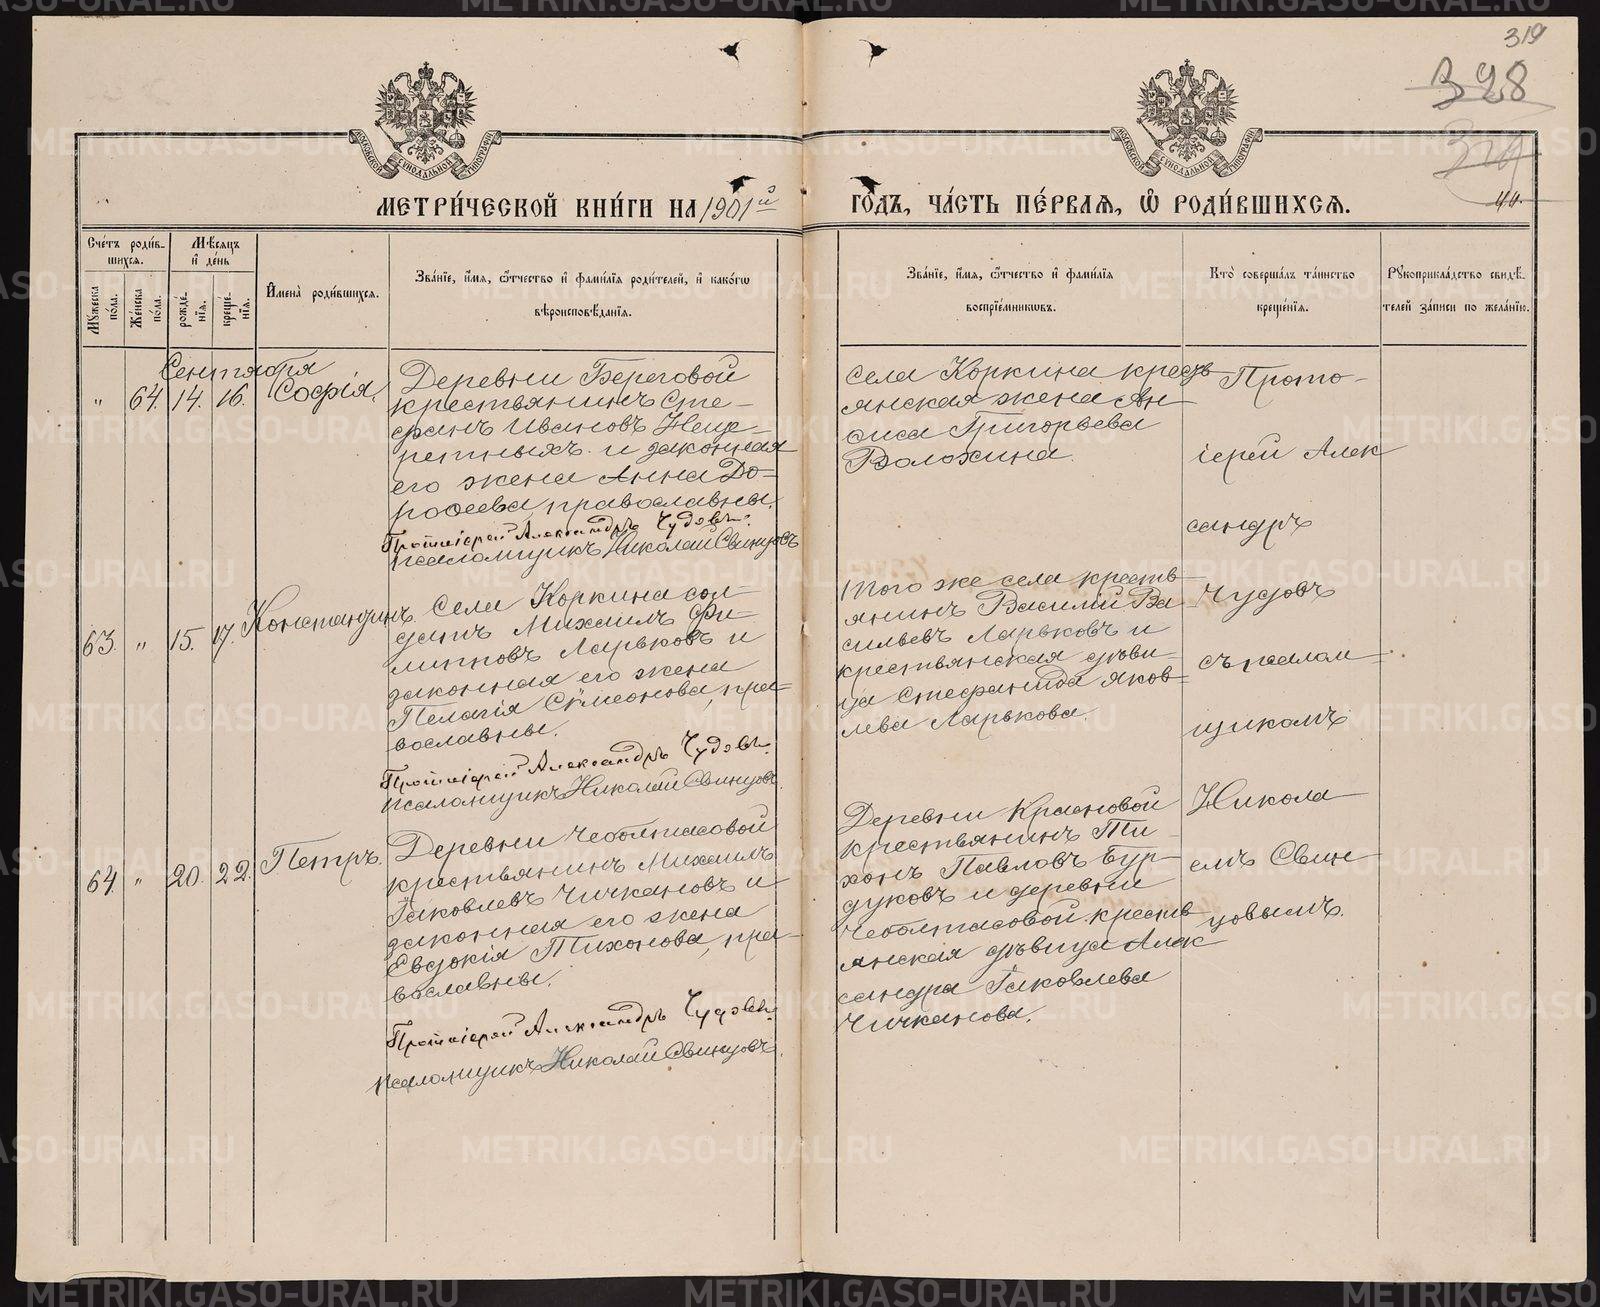 319
328
МЕТРИ́ЧЕСКОЙ КНИ́ГИ НА 1901й
ГО́ДЪ, ЧА́СТЬ ПЕ́РВАЯ, Ѡ РОДИ́ВШИХСЯ.
МОСКОВСКОЙ СУНОДАЛЬНОЙ ТИПОГРАФІИ
МОСКОВСКОЙ СУНОДАЛЬНОЙ ТИПОГРАФІИ
Сче́тъ роди́в-
шихся.
Му́жеска по́ла.
Же́нска по́ла.
Мѣ́сяцъ
и де́нь
рожде́-
нїя.
креще́-
нїя.
Имена̀ роди́вшихся.
Зва́нїе, и́мя, ѻ҆́тчество и фами́лїя роди́телей, и како́гѡ
вѣроисповѣ́данїя.
Зва́нїе, и́мя, ѻ҆́тчество и фами́лїя
воспрїе́мникѡвъ.
Кто̀ соверша́лъ та́инство
креще́нїя.
Рꙋкоприкла́дство свидѣ́-
телей за́писи по жела́нїю.
Сентября
" 64. 14. 16. Софія.
Деревни Береговой
крестьянинъ Сте-
фанъ Ивановъ Неце-
ретныхъ и законная
его жена Анна До-
роѳеева, православны.
Протоіерей Александръ Чудовъ.
псаломщикъ Николай Свинцовъ
села Коркина кресть
янская жена Ан-
фиса Григорьева
Волохина.
Прото-
іерей Алек
сандръ
Чудовъ
съ псалом-
щикомъ
Никола
емъ Свин
цовымъ.
63. " 15. 17. Константинъ.
Села Коркина сол-
датъ Михаилъ Фи-
липповъ Ларьковъ и
законная его жена
Пелагія Сѵмеонова, пра-
вославны.
Протоіерей Александръ Чудовъ.
псаломщикъ Николай Свинцовъ
того же села кресть
янинъ Василій Ва
сильевъ Ларьковъ и
крестьянская дѣви-
ца Стефанида Яков-
лева Ларькова.
64. " 20. 22. Петръ.
Деревни Чеботасовой
крестьянинъ Михаилъ
Іаковлевъ Чичкановъ и
законная его жена
Евдокія Тихонова, пра-
вославны.
Протоіерей Александръ Чудовъ.
псаломщикъ Николай Свинцовъ.
Деревни Крысновой
крестьянинъ Ти-
хонъ Павловъ Бур-
дуковъ и деревни
Чеботасовой кресть
янская дѣвица Алек
сандра Іаковлева
Чичканова.
METRIKI.GASO-URAL.RU